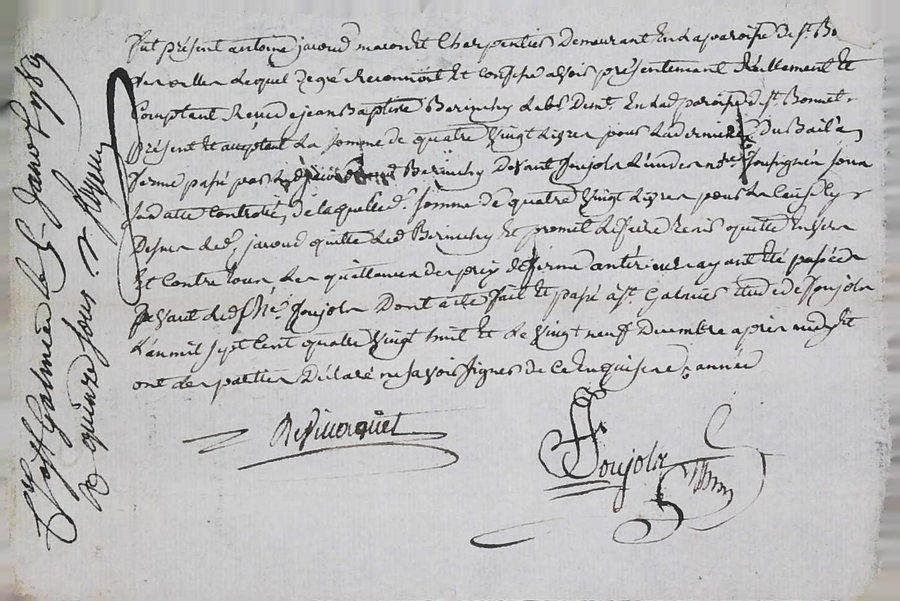 fut présent antoine jaroud macon et Charpentier Demeurant En La paroisse de st. Bo
Lequel de gré Reconnoit Et Confesse avoir présentement Réellement Et
Comptant Reçu de jean Baptiste Berinchy Lab. demt. En Lad. paroisse de st. Bonnet
présent Et acceptant La somme de quatre Vingt Livres pour La derniere du Bail a
ferme passé par Berinchy Devant Soujols Et notre Soussigné sous
sa datte Controlé, de laquelle d. somme de quatre Vingt Livres pour La Cause
Dessus Led. jaroud quitte Led. Berinchy Et promet Le faire tenir quitte Envers
Et Contre tous, Les quittances des prix de ferme antérieurs ayant été passées
Devant Led. Me. Soujols Dont acte fait Et passé a st. Galmier Etude de Soujols
L'an mil sept Cent quatre Vingt huit Et Le Vingt neuf Decembre après midy Et
ont Les parties Déclaré ne savoir signer de Ce Enquis
Soujols
St Galmier le 5 Janv 1789
quinze sous